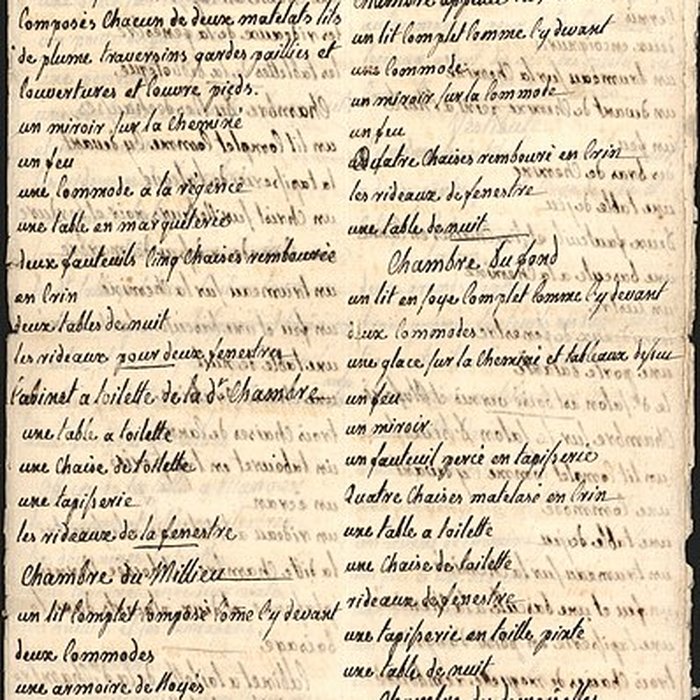 Composés Chacun de deux matelats lits
de plume traversins gardes paillies et
Couvertures et Couvre pieds.
un miroir sur la Cheminé
un feu
une Commode a la regence
une table en marquiterie
deux fauteuils Cinq Chaises rembourée
en Crin
deux tables de nuit
les rideaux pour deux fenestres
Cabinet a toilette de la de Chambre
une table a toilette
une Chaise de toilette
une tapisserie
les rideaux de la fenestre
Chambre du Millieu
un lit Complet Composé Come Cy devant
deux Commodes
une armoire de Noyés
un lit Complet Comme Cy devant
une Commode
un miroir sur la Commode
un feu
Quatre Chaises rembouré en Crin
les rideaux de fenestre
une table de nuit
Chambre du fond
un lit en soye Complet Comme Cy devant
deux Commodes
une glace sur la Cheminé et tableaux dessu
un feu
un miroir
un fauteuil percé en tapisserie
Quatre Chaises matelasé en Crin
une table a toilette
une Chaise de toilette
rideaux de fenestre
une tapisserie en toille pinte
une table de nuit